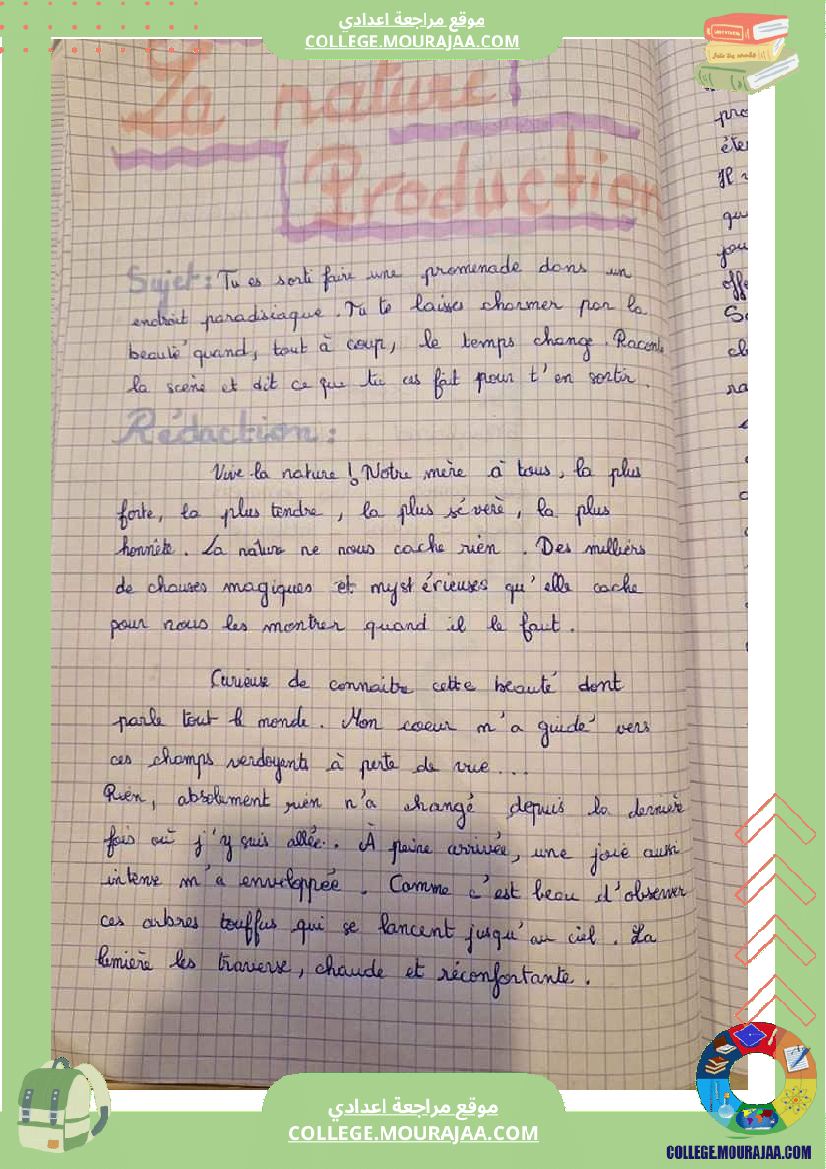 موقع مراجعة اعدادي
COLLEGE.MOURAJAA.COM
La nature
Production
Sujet: Tu es sorti faire une promenade dans un
endroit paradisiaque. Tu te laisses charmer par la
beauté quand, tout à coup, le temps change. Raconte
la scène et dit ce que tu as fait pour t'en sortir.
Rédaction:
Vive la nature! Notre mère à tous, la plus
forte, la plus tendre, la plus sévère, la plus
honnête. La nature ne nous cache rien. Des milliers
de chauses magiques et mystérieuses qu'elle cache
pour nous les montrer quand il le faut.
Curieuse de connaitre cette beauté dont
parle tout le monde. Mon coeur m'a guidé vers
ces champs verdoyants à perte de vue...
Rien, absolument rien n'a changé depuis la dernière
fois où j'y suis allée. À peine arrivée, une joie aussi
intense m'a enveloppée. Comme c'est beau d'observer
ces arbres touffus qui se lancent jusqu'au ciel. La
lumière les traverse, chaude et réconfortante.
pro
Il
موقع مراجعة اعدادي
COLLEGE.MOURAJAA.COM
COLLEGE.MOURAJAA.COM